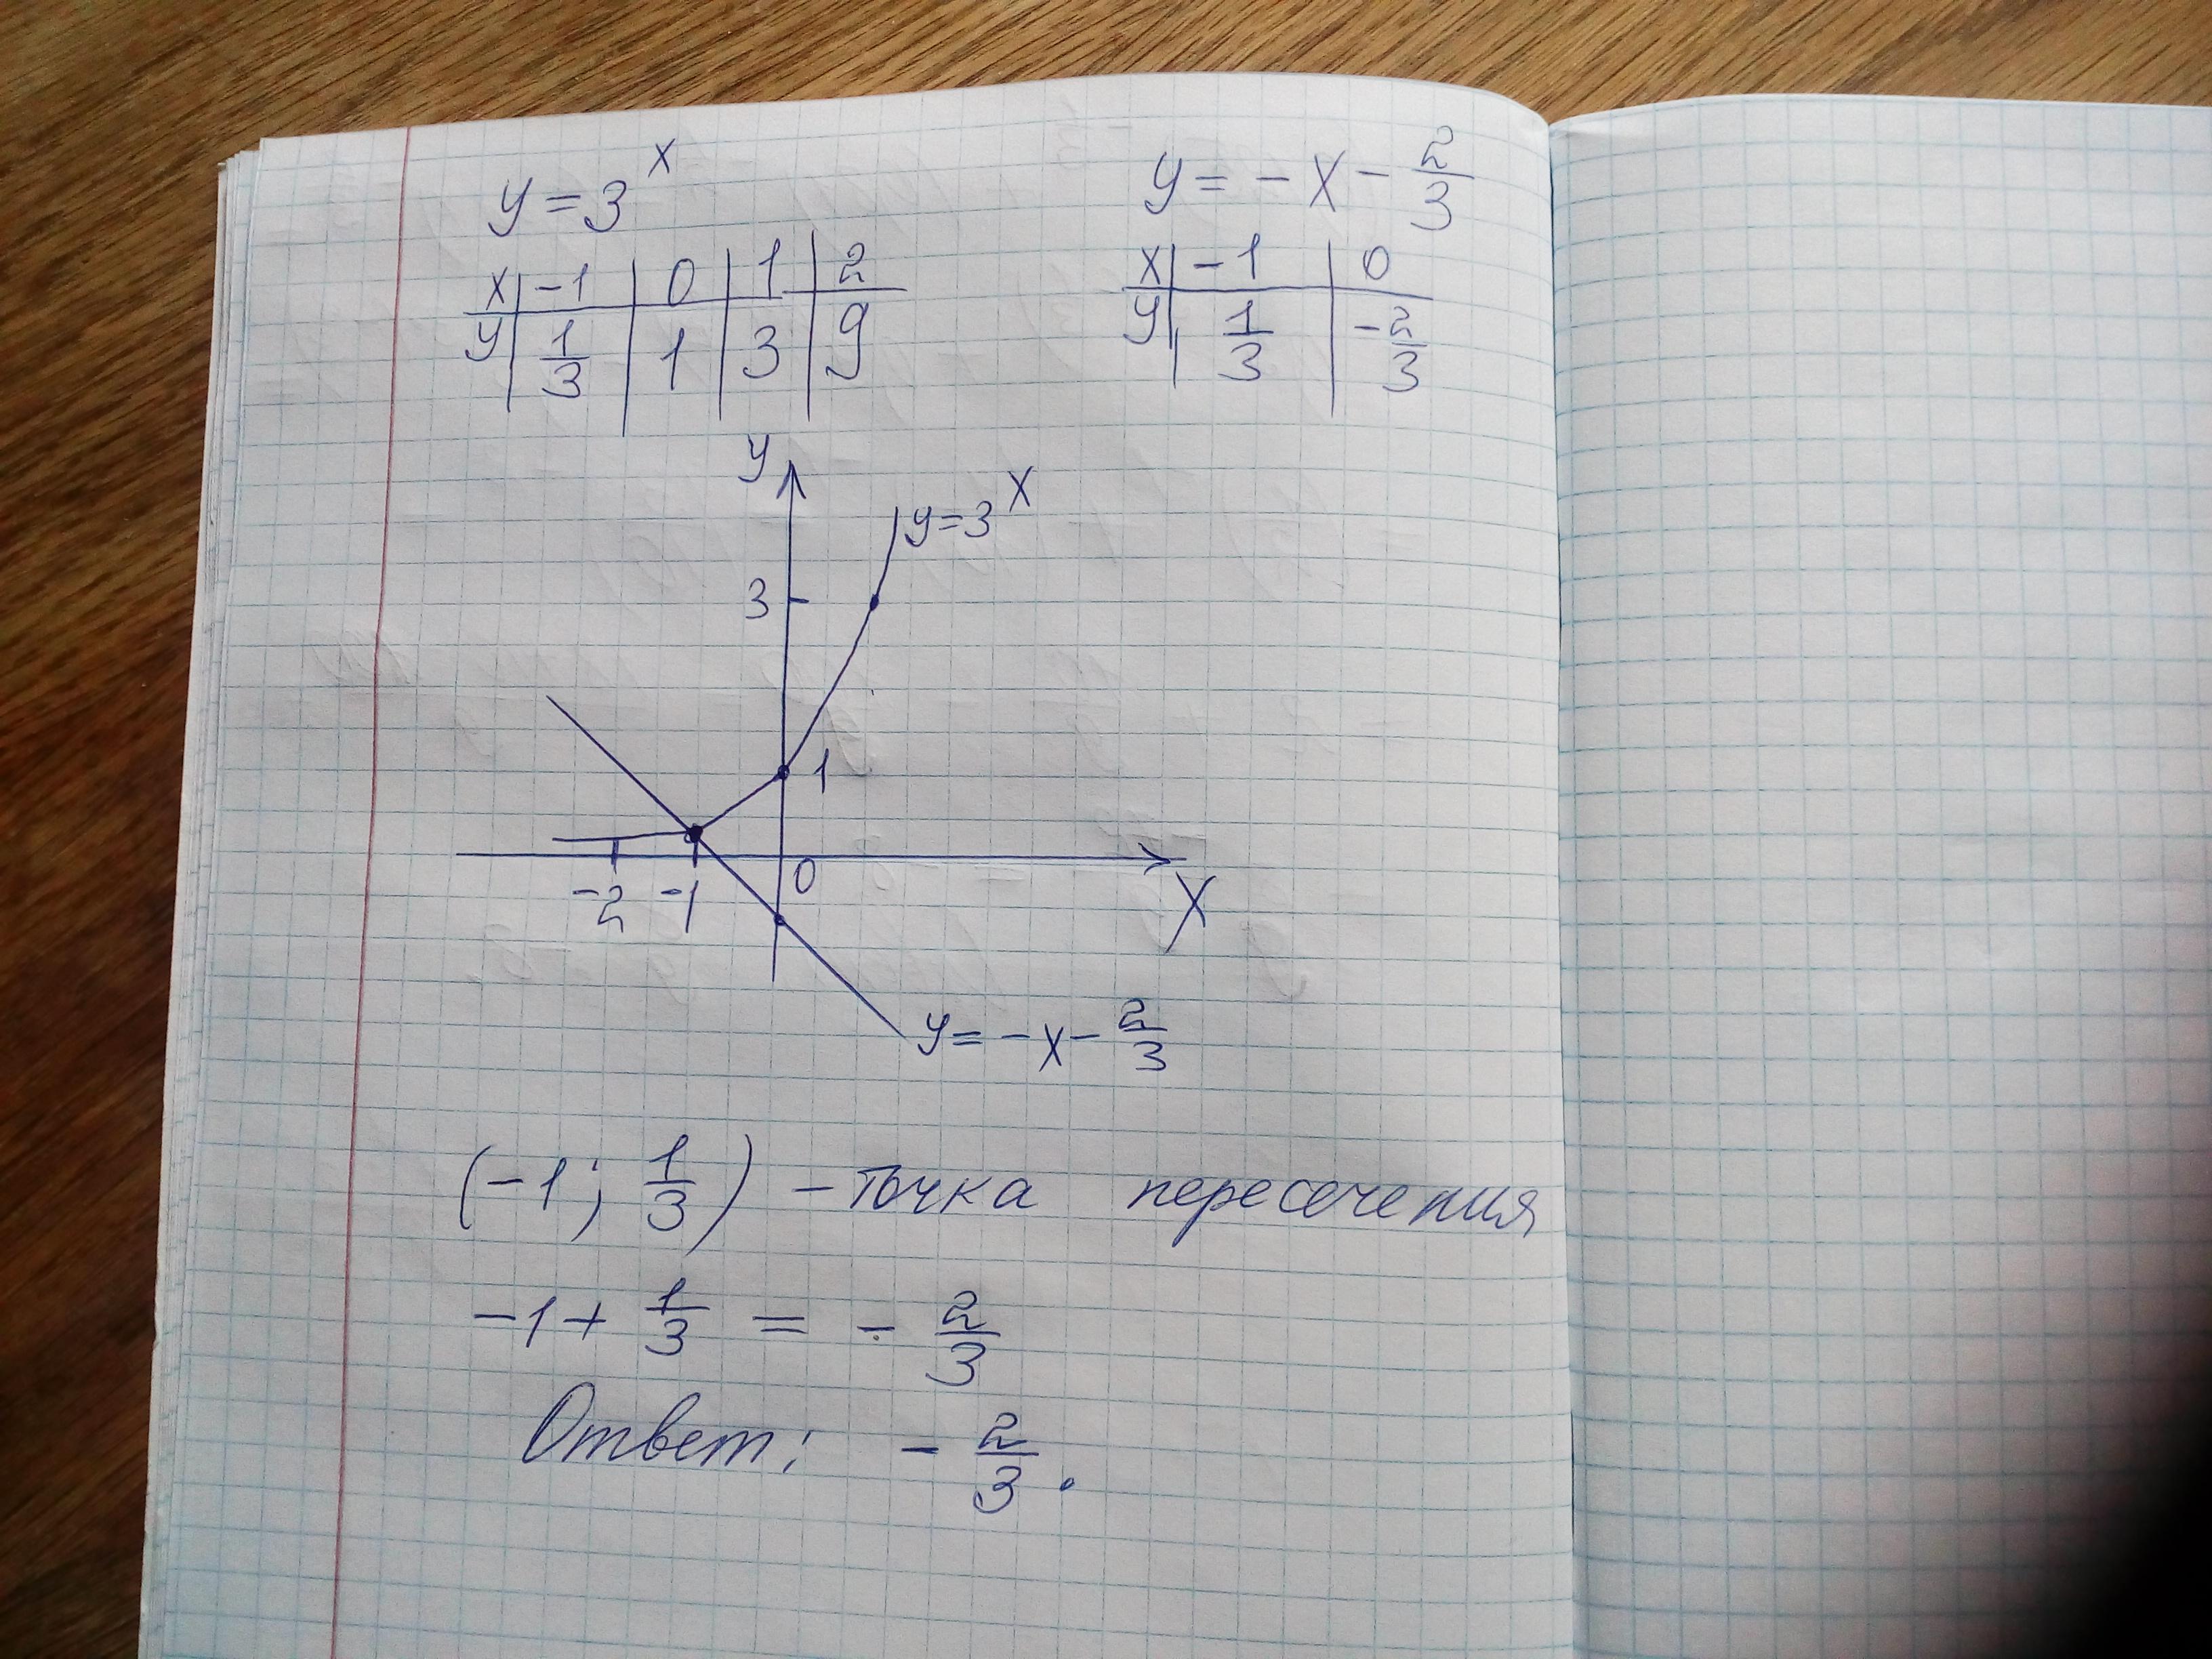 y = 3^x
x | -1 | 0 | 1 | 2
y | 1/3 | 1 | 3 | 9
y = -x - 2/3
x | -1 | 0
y | 1/3 | -2/3
y
y=3^x
3
1
-2 -1 0
X
y = -x - 2/3
(-1; 1/3) - точка пересечения
-1 + 1/3 = - 2/3
Ответ: - 2/3.